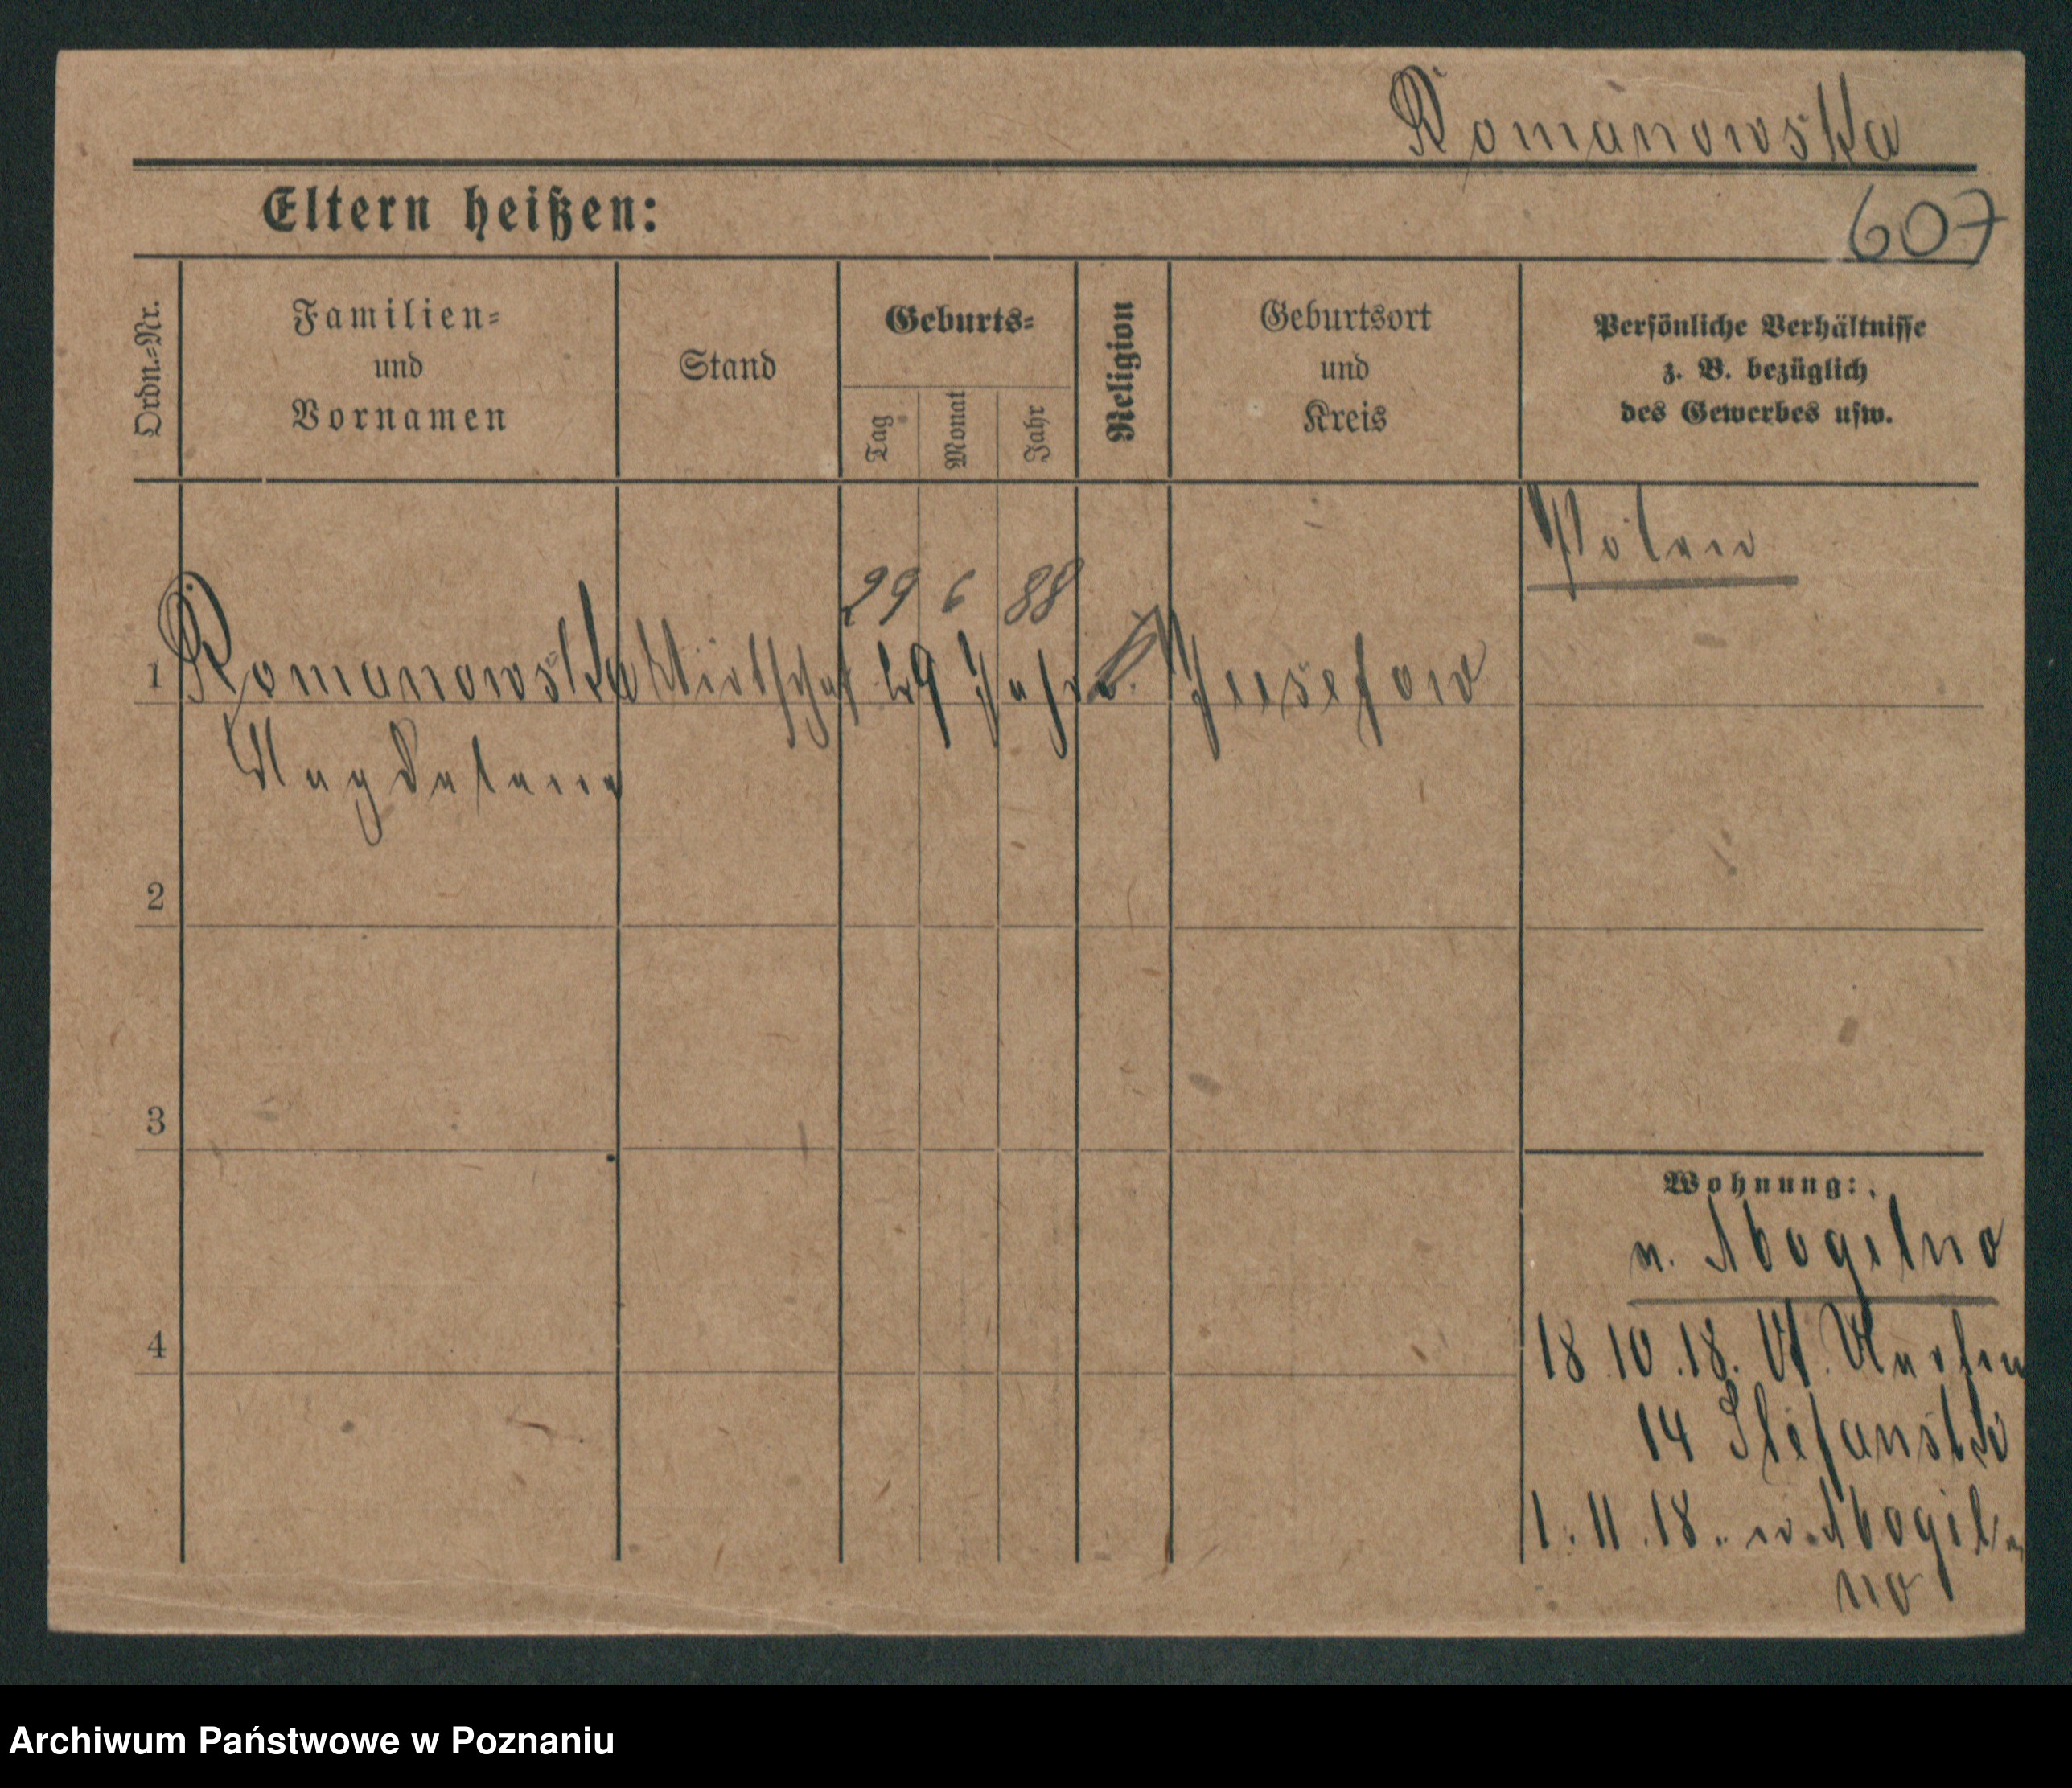 Romanowska
Eltern heißen:
607
Ordn.-Nr.
Familien-
und
Vornamen
Stand
Geburts-
Tag
Monat
Jahr
Religion
Geburtsort
und
Kreis
Persönliche Verhältnisse
z. B. bezüglich
des Gewerbes usw.
Polen
29 6 88
1 Romanowska 29 Jahre k. Jusefow
Magdalena
2
3
4
Wohnung:
n. Mogilno
18.10.18. St. Martin
14 Stefanski
1.11.18. n. Mogil-
no
Archiwum Państwowe w Poznaniu